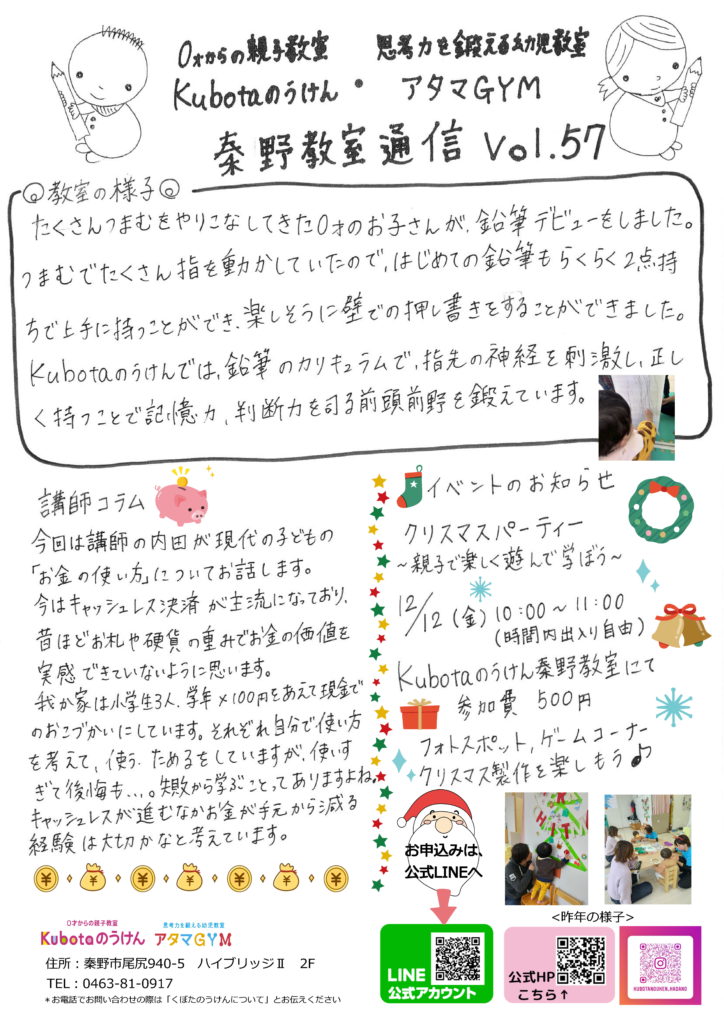 0才からの親子教室 思考力を鍛える幼児教室
Kubotaのうけん・アタマGYM
秦野教室通信 Vol.57
◎教室の様子◎
たくさんつまむをやりこなしてきた0才のお子さんが、鉛筆デビューをしました。
つまむでたくさん指を動かしていたので、はじめての鉛筆もらくらく2点持
ちで上手に持つことができ、楽しそうに壁での押し書きをすることができました。
Kubotaのうけんでは、鉛筆のカリキュラムで、指先の神経を刺激し、正し
く持つことで記憶力、判断力を司る前頭前野を鍛えています。
講師コラム
今回は講師の内田が現代の子どもの
「お金の使い方」についてお話します。
今はキャッシュレス決済が主流になっており、
昔ほどお札や硬貨の重みでお金の価値を
実感できていないように思います。
我が家は小学生3人、学年×100円をあえて現金で
のおこづかいにしています。それぞれ自分で使い方
を考えて、使う、ためるをしていますが、使いす
ぎて後悔も...。失敗から学ぶことってありますよね。
キャッシュレスが進むなかお金が手元から減る
経験は大切かなと考えています。
イベントのお知らせ
クリスマスパーティー
〜親子で楽しく遊んで学ぼう〜
12/12(金)10:00〜11:00
(時間内出入り自由)
Kubotaのうけん秦野教室にて
参加費 500円
フォトスポット,ゲームコーナー
クリスマス製作を楽しもう♪
お申込みは、
公式LINEへ
<昨年の様子>
0才からの親子教室 思考力を鍛える幼児教室
Kubotaのうけん アタマGYM
住所：秦野市尾尻940-5 ハイブリッジⅡ 2F
TEL：0463-81-0917
＊お電話でお問い合わせの際は「くぼたのうけんについて」とお伝えください
LINE
公式アカウント
公式HP
こちら↑
KUBOTANOUKEN.HADANO